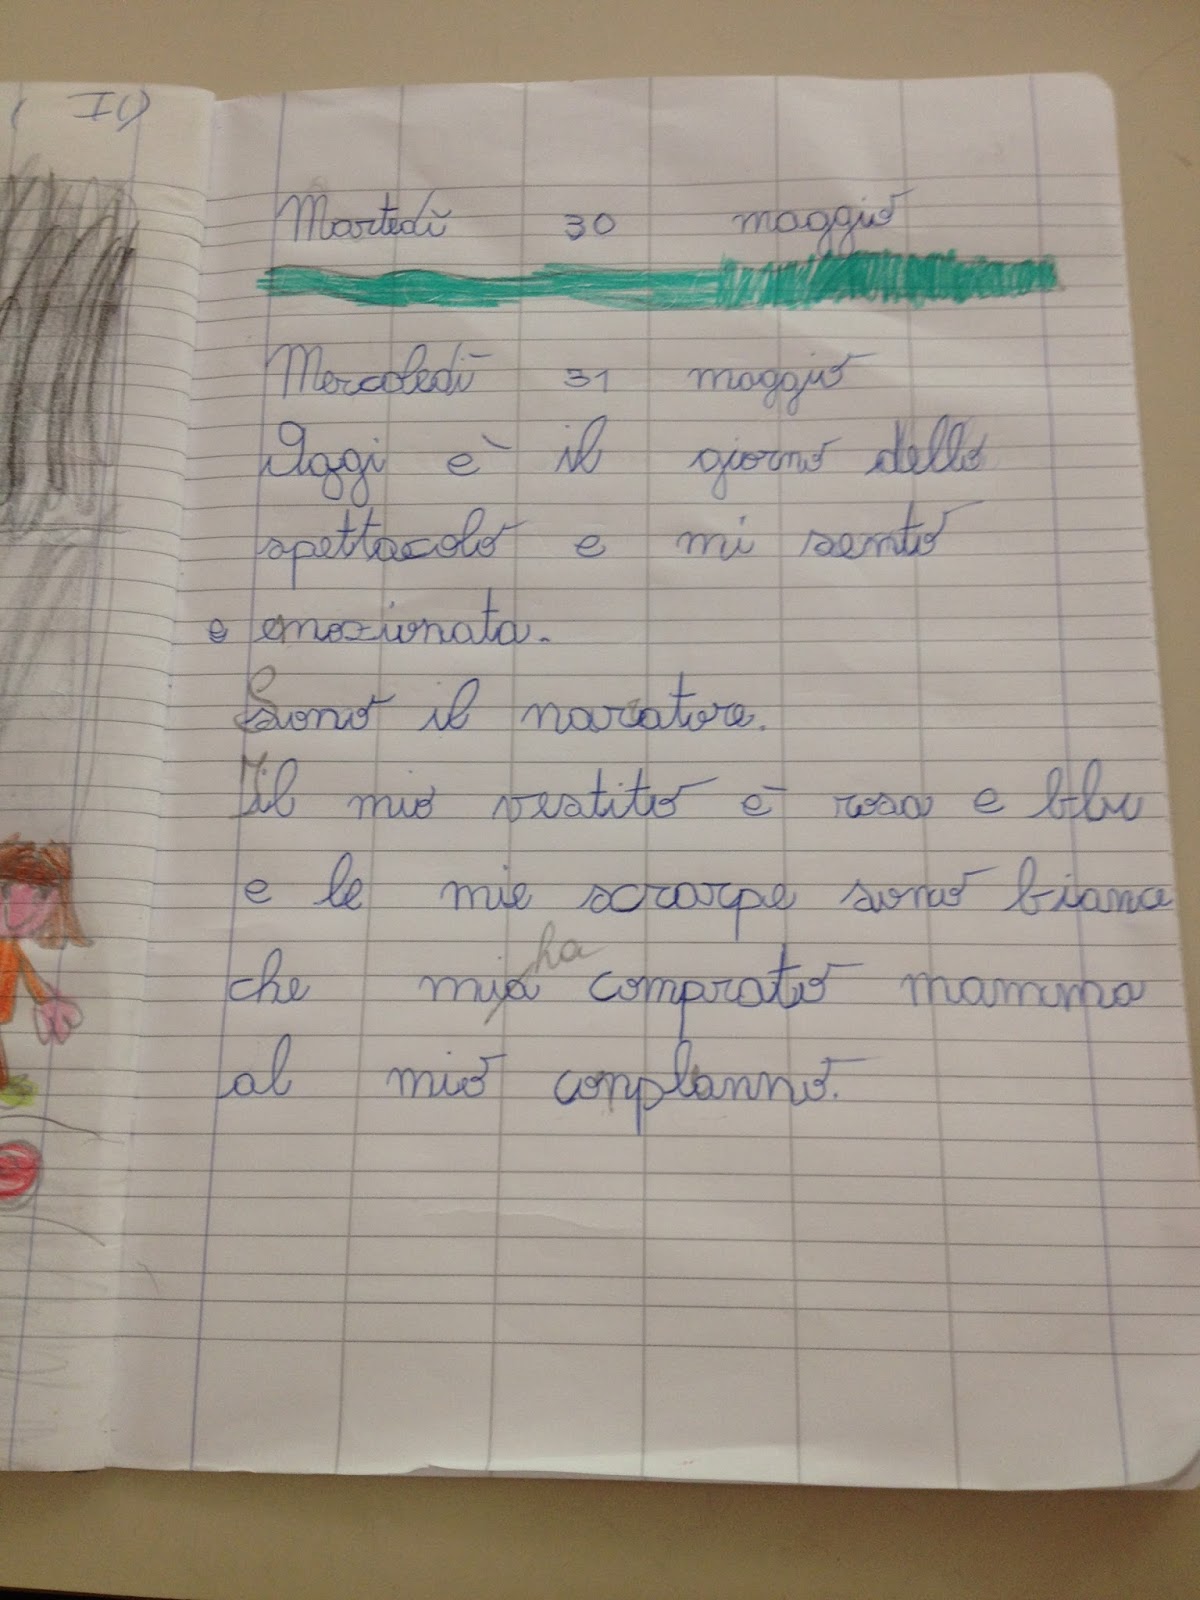 Martedì 30 maggio
Mercoledì 31 maggio
Oggi è il giorno dello
spettacolo e mi sento
e emozionata.
Sono il naratore.
Il mio vestito è rosa e blu
e le mie scrarpe sono bianc
ha
che mia comprato mamma
al mio conplanno.